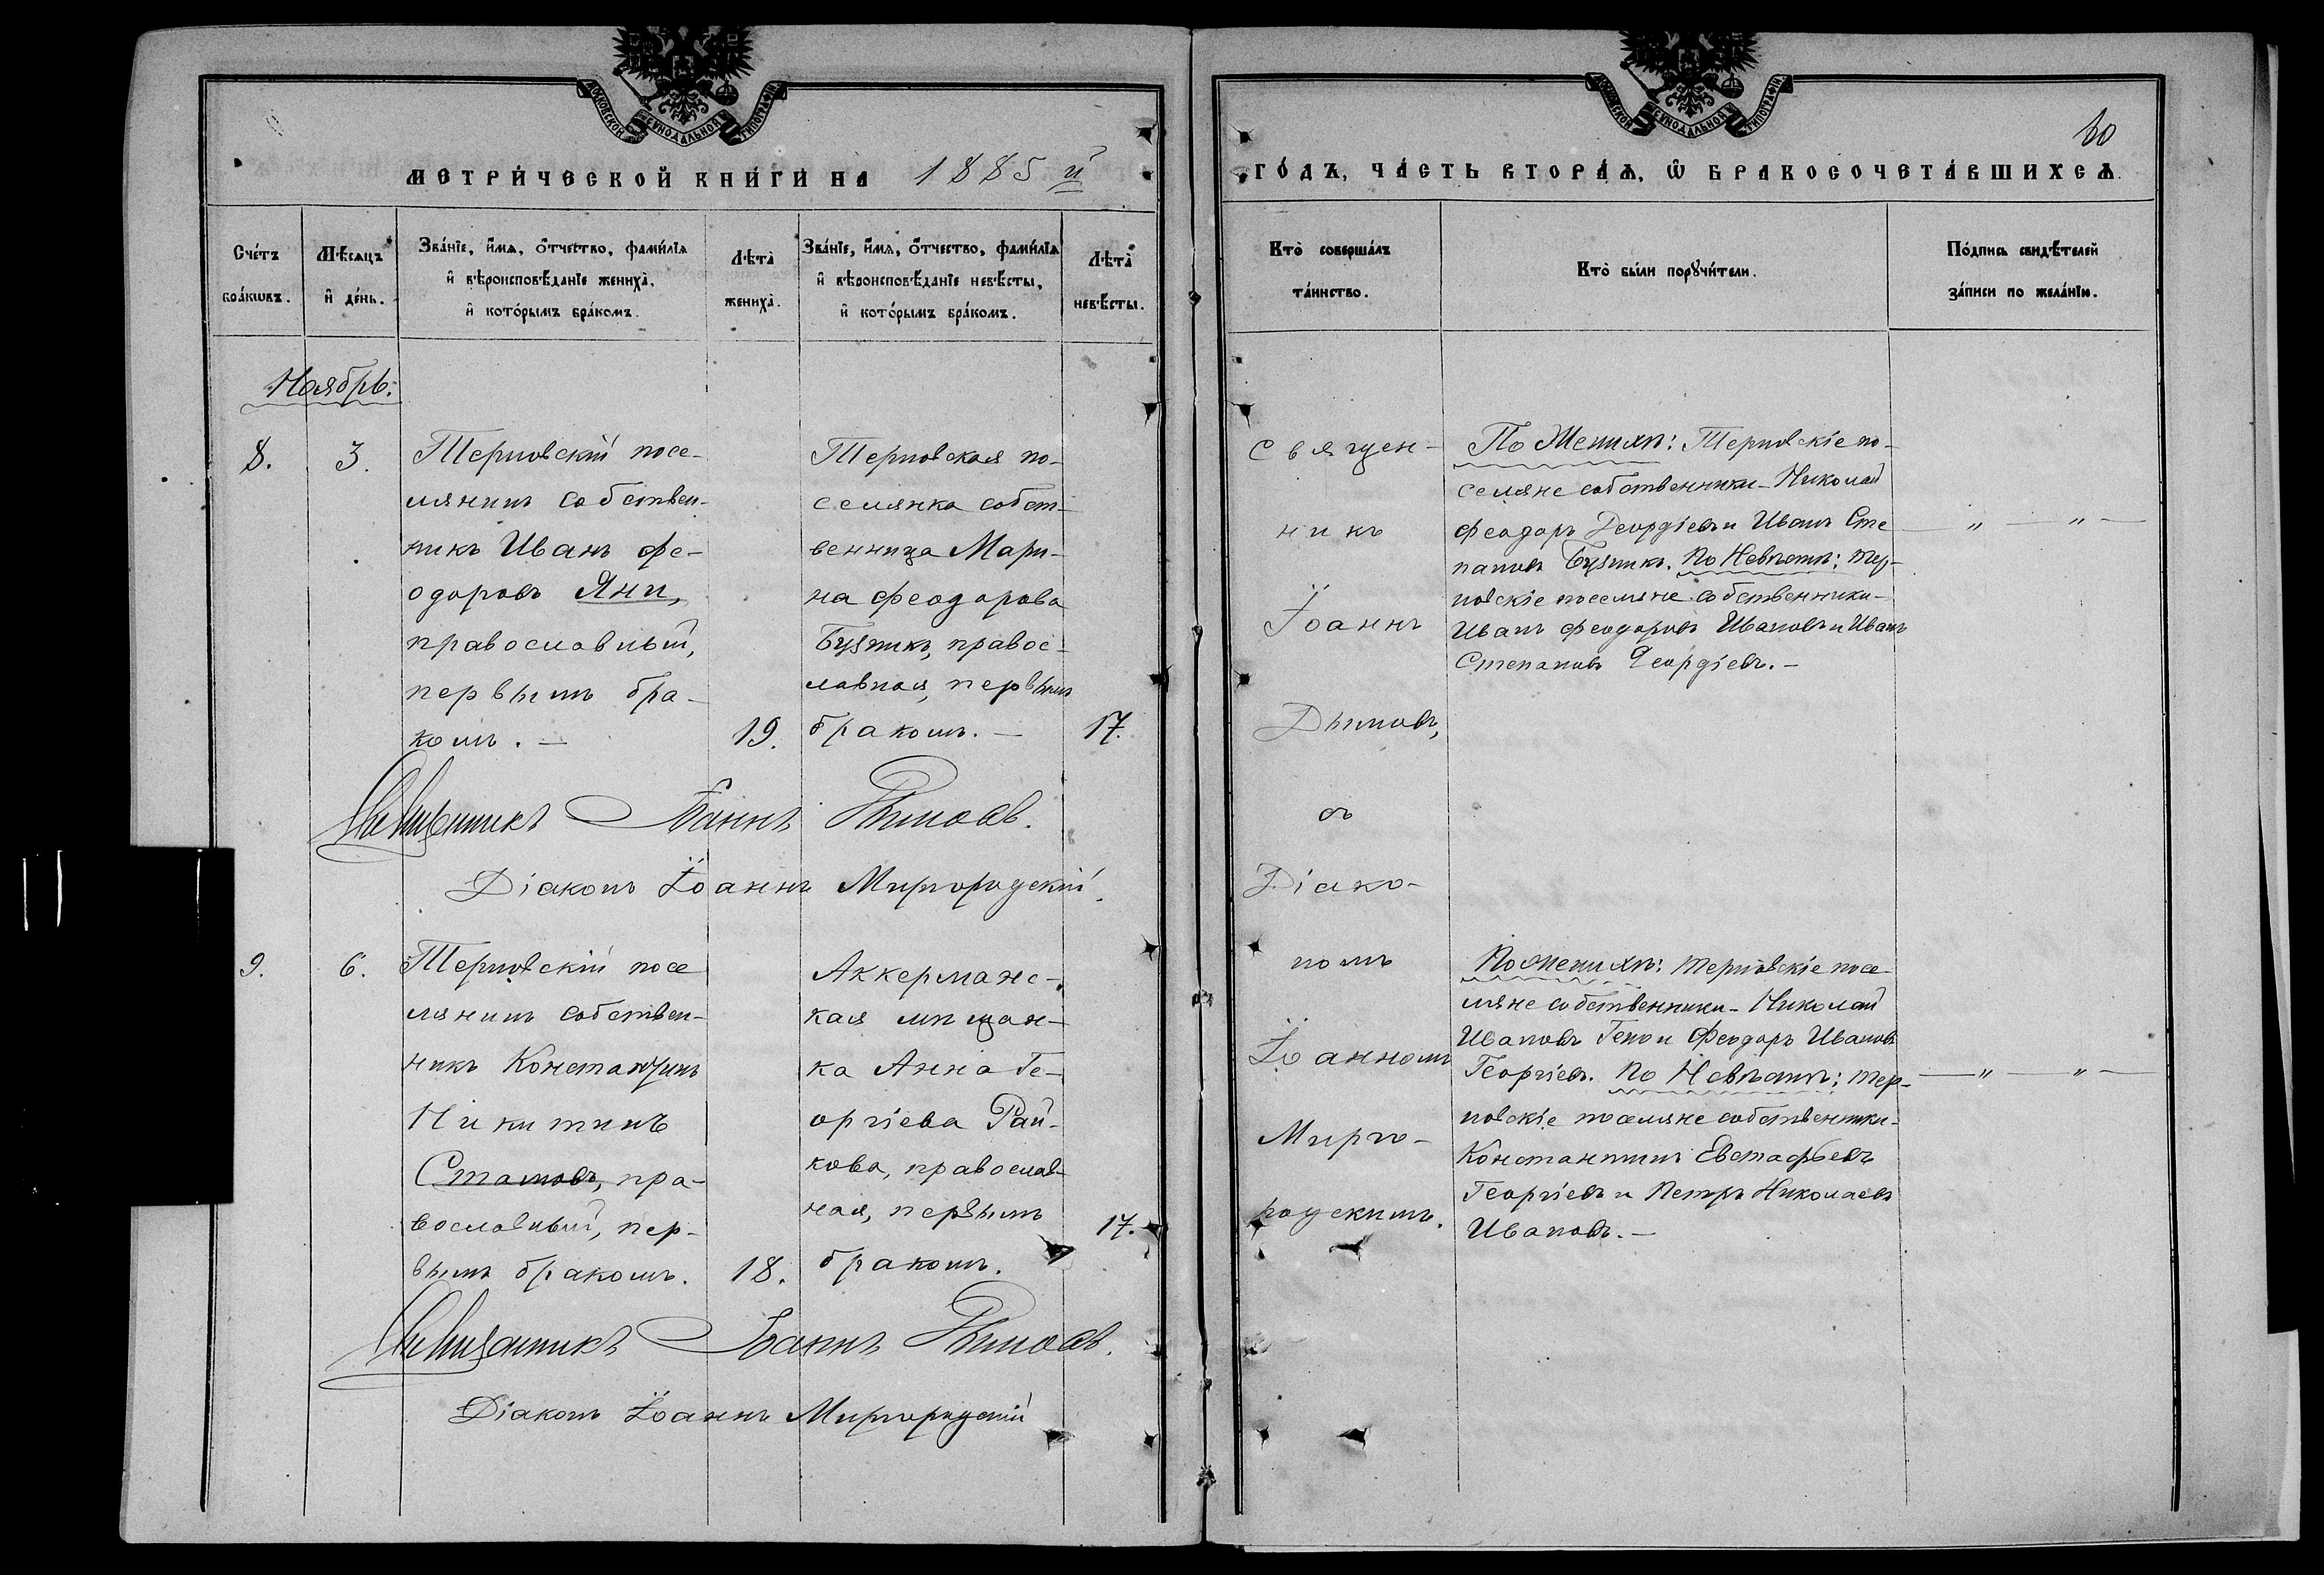 МОСКОВСКОЙ СѴНОДАЛЬНОЙ ТИПОГРАФІИ
МЕТРИ́ЧЕСКОЙ КНИ́ГИ НА 1885 й
Счéтъ бра́ковъ.
Мѣ́сяцъ и҆ де́нь.
Зва́нїе, и҆́мѧ, ѻ҆́тчество, фами́лїѧ и҆ вѣроисповѣ́данїе жениха̀, и҆ кото́рымъ бра́комъ.
Лѣта̀ жениха̀.
Зва́нїе, и҆́мѧ, ѻ҆́тчество, фами́лїѧ и҆ вѣроисповѣ́данїе невѣ́сты, и҆ кото́рымъ бра́комъ.
Лѣта̀ невѣ́сты.
Ноябрь.
8.
3.
Терновскій посе-
лянинъ собствен-
никъ Иванъ Фе-
одоровъ Яни,
православный,
первымъ бра-
комъ. —
19.
Терновская по-
селянка собст-
венница Мари-
на Феодорова
Бузникъ, правос-
лавная, первымъ
бракомъ. —
17.
Священникъ Іоаннъ Дымовъ.
Діаконъ Іоаннъ Миргородскій.
9.
6.
Терновскій посе
лянинъ собствен-
никъ Константинъ
Никитинъ
Стамовъ, пра-
вославный, пер-
вымъ бракомъ.
18.
Аккерманс-
кая мѣщан-
ка Анна Ге-
оргіева Рай-
кова, православ-
ная, первымъ
бракомъ.
17.
Священникъ Іоаннъ Дымовъ.
Діаконъ Іоаннъ Миргородскій
МОСКОВСКОЙ СѴНОДАЛЬНОЙ ТИПОГРАФІИ
60
ГО́ДЪ, ЧА́СТЬ ВТОРА́Ѧ, Ѡ҆ БРАКОСОЧЕТА́ВШИХСѦ.
Кто̀ соверша́лъ та́инство.
Кто̀ бы́ли порꙋчи́тели.
По́дпись свидѣ́телей за́писи по жела́нїю.
Священ-
никъ
Іоаннъ
Дымовъ,
съ
Діако-
номъ
Іоанномъ
Мирго-
родскимъ.
По Женихѣ: Терновскіе по-
селяне собственники - Николай
Феодоръ Георгіевъ и Иванъ Сте
пановъ Бузникъ. По Невѣстѣ: тер-
новскіе поселяне собственники -
Иванъ Феодоровъ Ивановъ и Иванъ
Степановъ Георгіевъ. -
— „ — „ —
По женихѣ: терновскіе посе-
ляне собственники - Николай
Ивановъ Гено и Феодоръ Ивановъ
Георгіевъ. По Невѣстѣ: тер-
новскіе поселяне собственники -
Константинъ Евстафьевъ
Георгіевъ и Петръ Николаевъ
Ивановъ. —
— „ — „ —